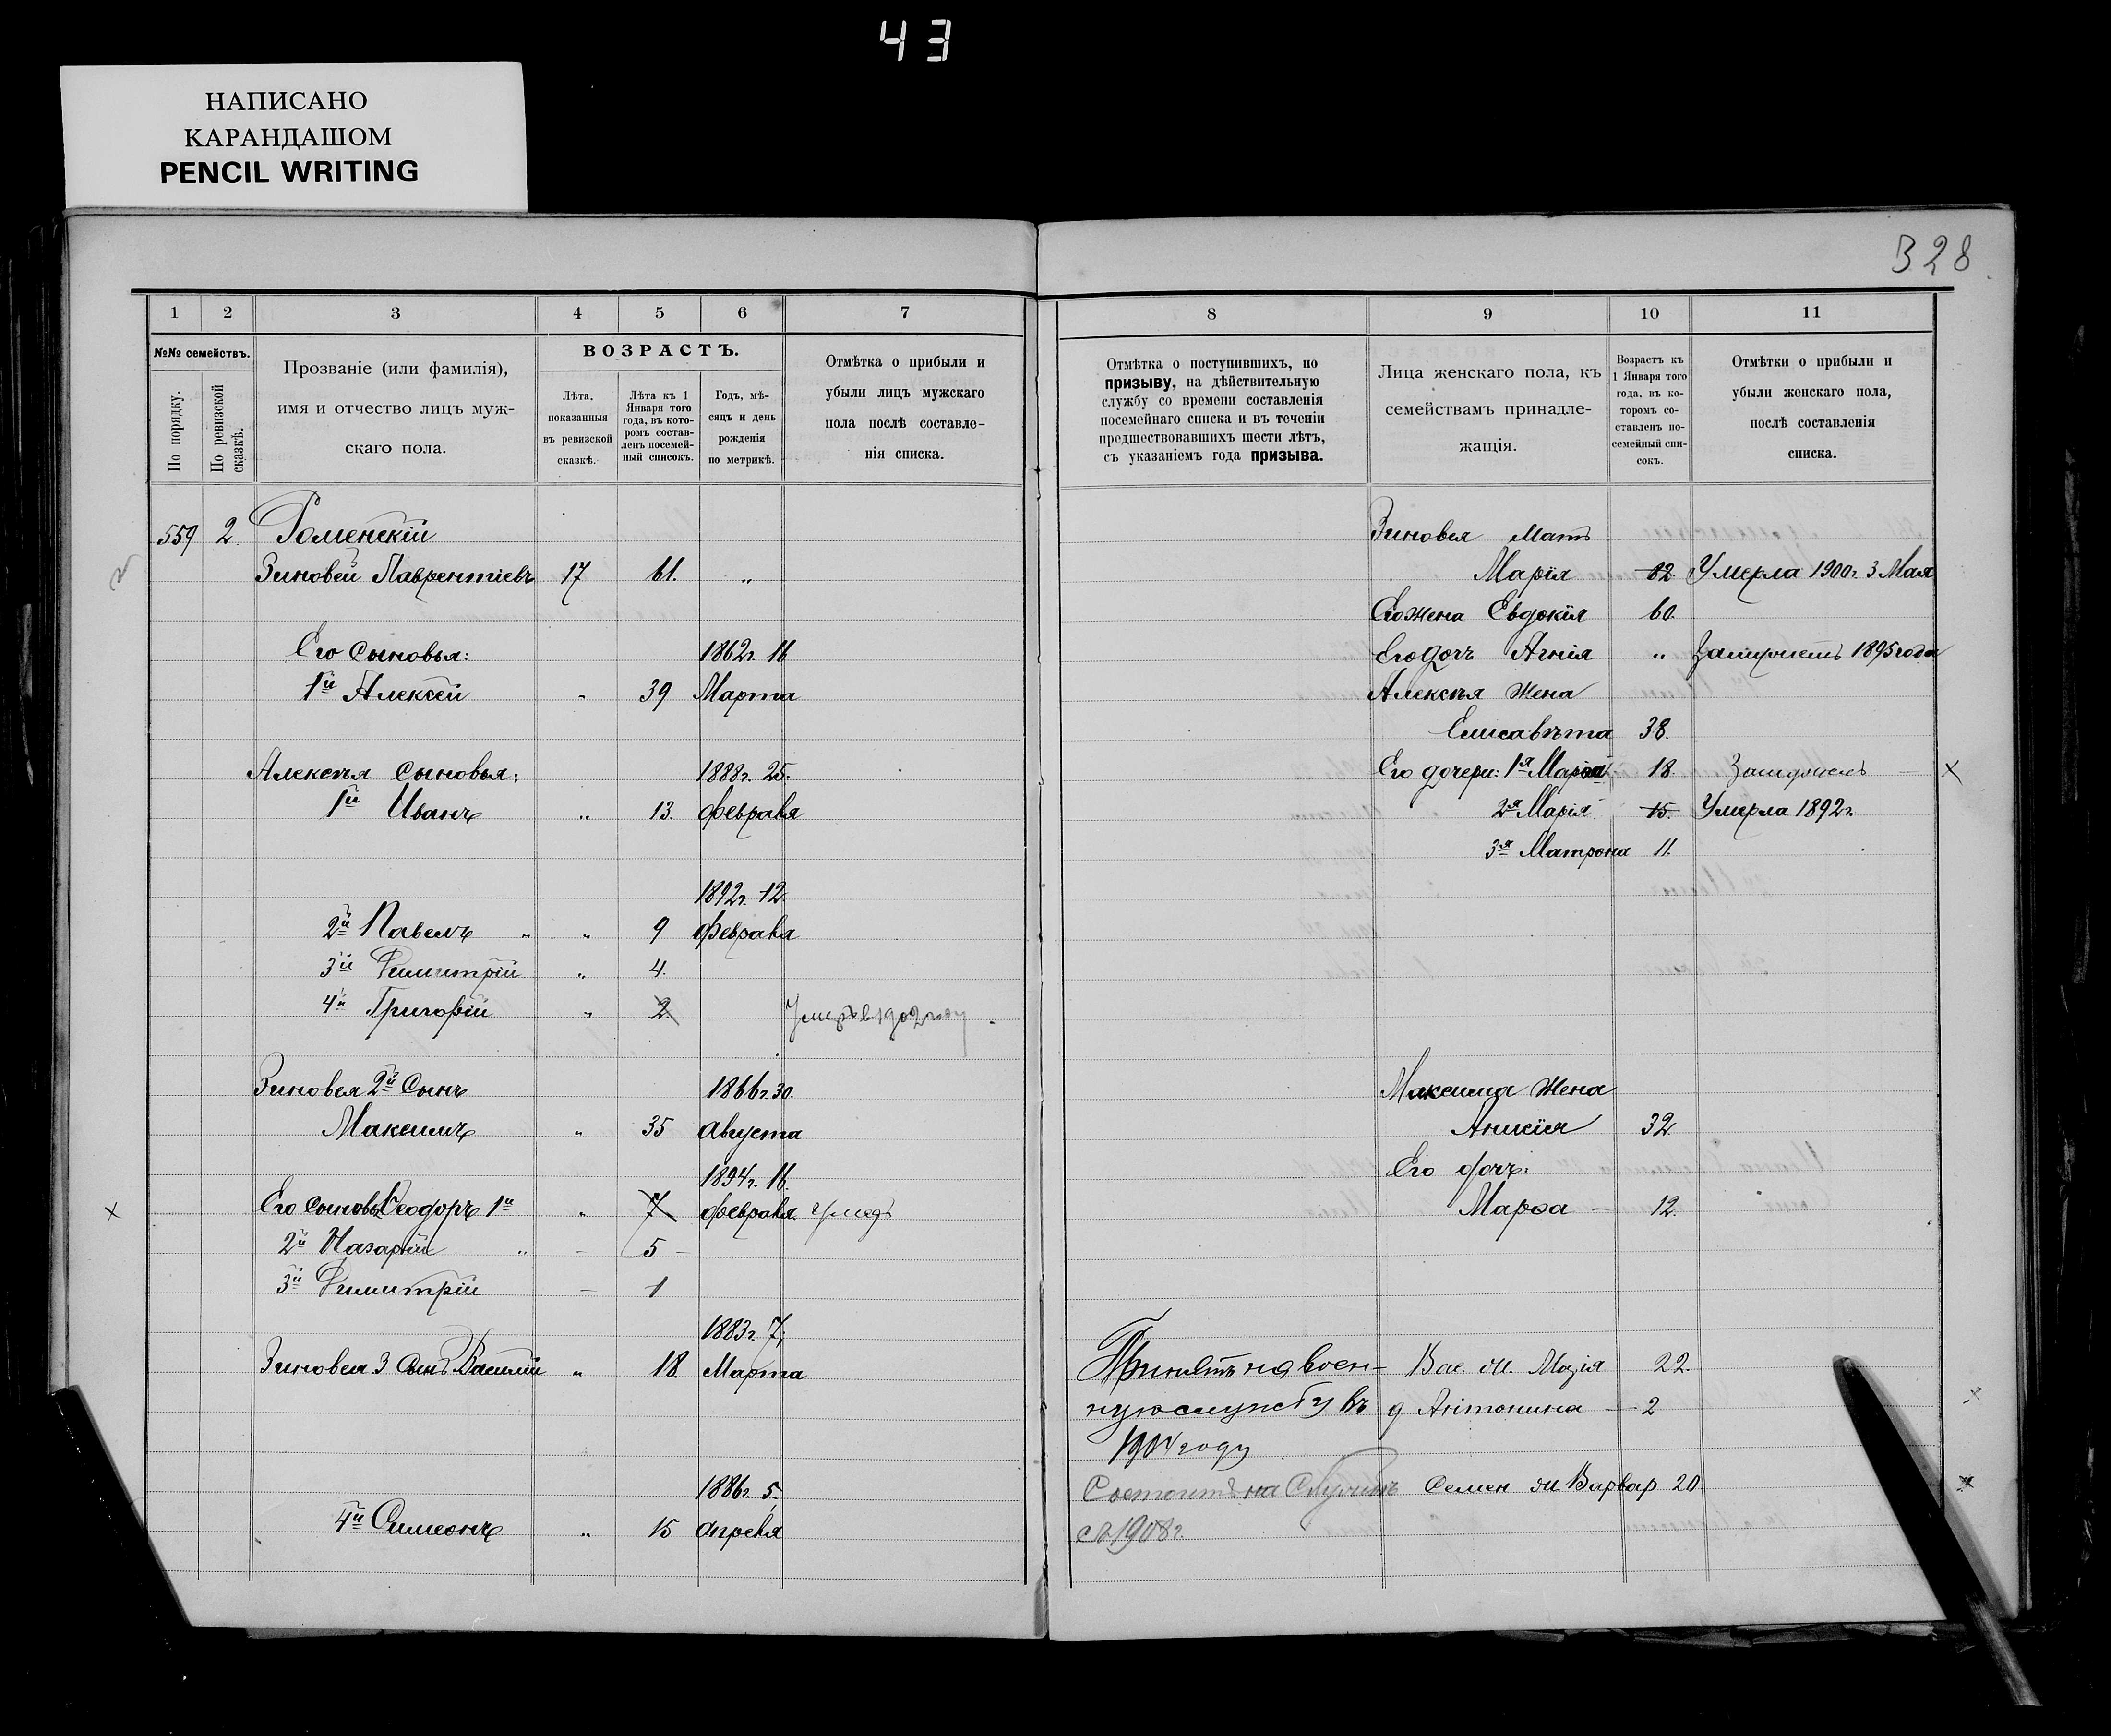 43
НАПИСАНО
КАРАНДАШОМ
PENCIL WRITING
328
1 2 3 4 5 6 7
№№ семействъ.
По порядку.
По ревизской сказкѣ.
Прозваніе (или фамилія),
имя и отчество лицъ муж-
скаго пола.
ВОЗРАСТЪ.
Лѣта,
показанныя
въ ревизской
сказкѣ.
Лѣта къ 1
Января того
года, въ кото-
ромъ состав-
ленъ посемей-
ный списокъ.
Годъ, мѣ-
сяцъ и день
рожденія
по метрикѣ.
Отмѣтка о прибыли и
убыли лицъ мужскаго
пола послѣ составле-
нія списка.
559 2. Роменскій
Зиновей Лаврентіевъ 17 61. „
Его сыновья: 1862г. 16
1й Алексѣй „ 39 Марта
Алексѣя сыновья: 1888г. 25.
1й Иванъ „ 13. февраля
1892г. 12.
2й Павелъ „ „ 9 февраля
3й Димитрій „ 4.
4й Григорій „ 2. Умеръ в 1902 году
Зиновея 2й Сынъ 1866г. 30.
Максимъ „ 35 августа
1894г. 16.
Его сыновья Ѳеодоръ 1й „ 7 февраля. умеръ
2й Назарій „ – 5 –
3й Димитрій – 1
1883г. 7,
Зиновея 3 Сынъ Василій „ 18. Марта
1886г. 5.
4й Симеонъ „ 15 апреля
8 9 10 11
Отмѣтка о поступившихъ, по
призыву, на дѣйствительную
службу со времени составленія
посемейнаго списка и въ теченіи
предшествовавшихъ шести лѣтъ,
съ указаніемъ года призыва.
Лица женскаго пола, къ
семействамъ принадле-
жащія.
Возрастъ къ
1 Января того
года, въ ко-
торомъ со-
ставленъ по-
семейный спи-
сокъ.
Отмѣтки о прибыли и
убыли женскаго пола,
послѣ составленія
списка.
Зиновея Мать
Марія 82 Умерла 1900г. 3 Мая
Его жена Евдокія 60.
Его дочь Агнія „ Замужемъ 1895 года
Алексѣя жена
Елисавѣта 38.
Его дочери: 1я Марѳа 18. Замужемъ
2я Марія 15. Умерла 1892г.
3я Матрона 11.
Максима жена
Анисія 32.
Его дочь:
Марѳа – 12.
Принятъ на воен- Вас. ж. Марія 22.
ную службу въ д Антонина – 2
1904 году
Состоитъ на Службѣ Семен ж Варвар 20
съ 1908г.